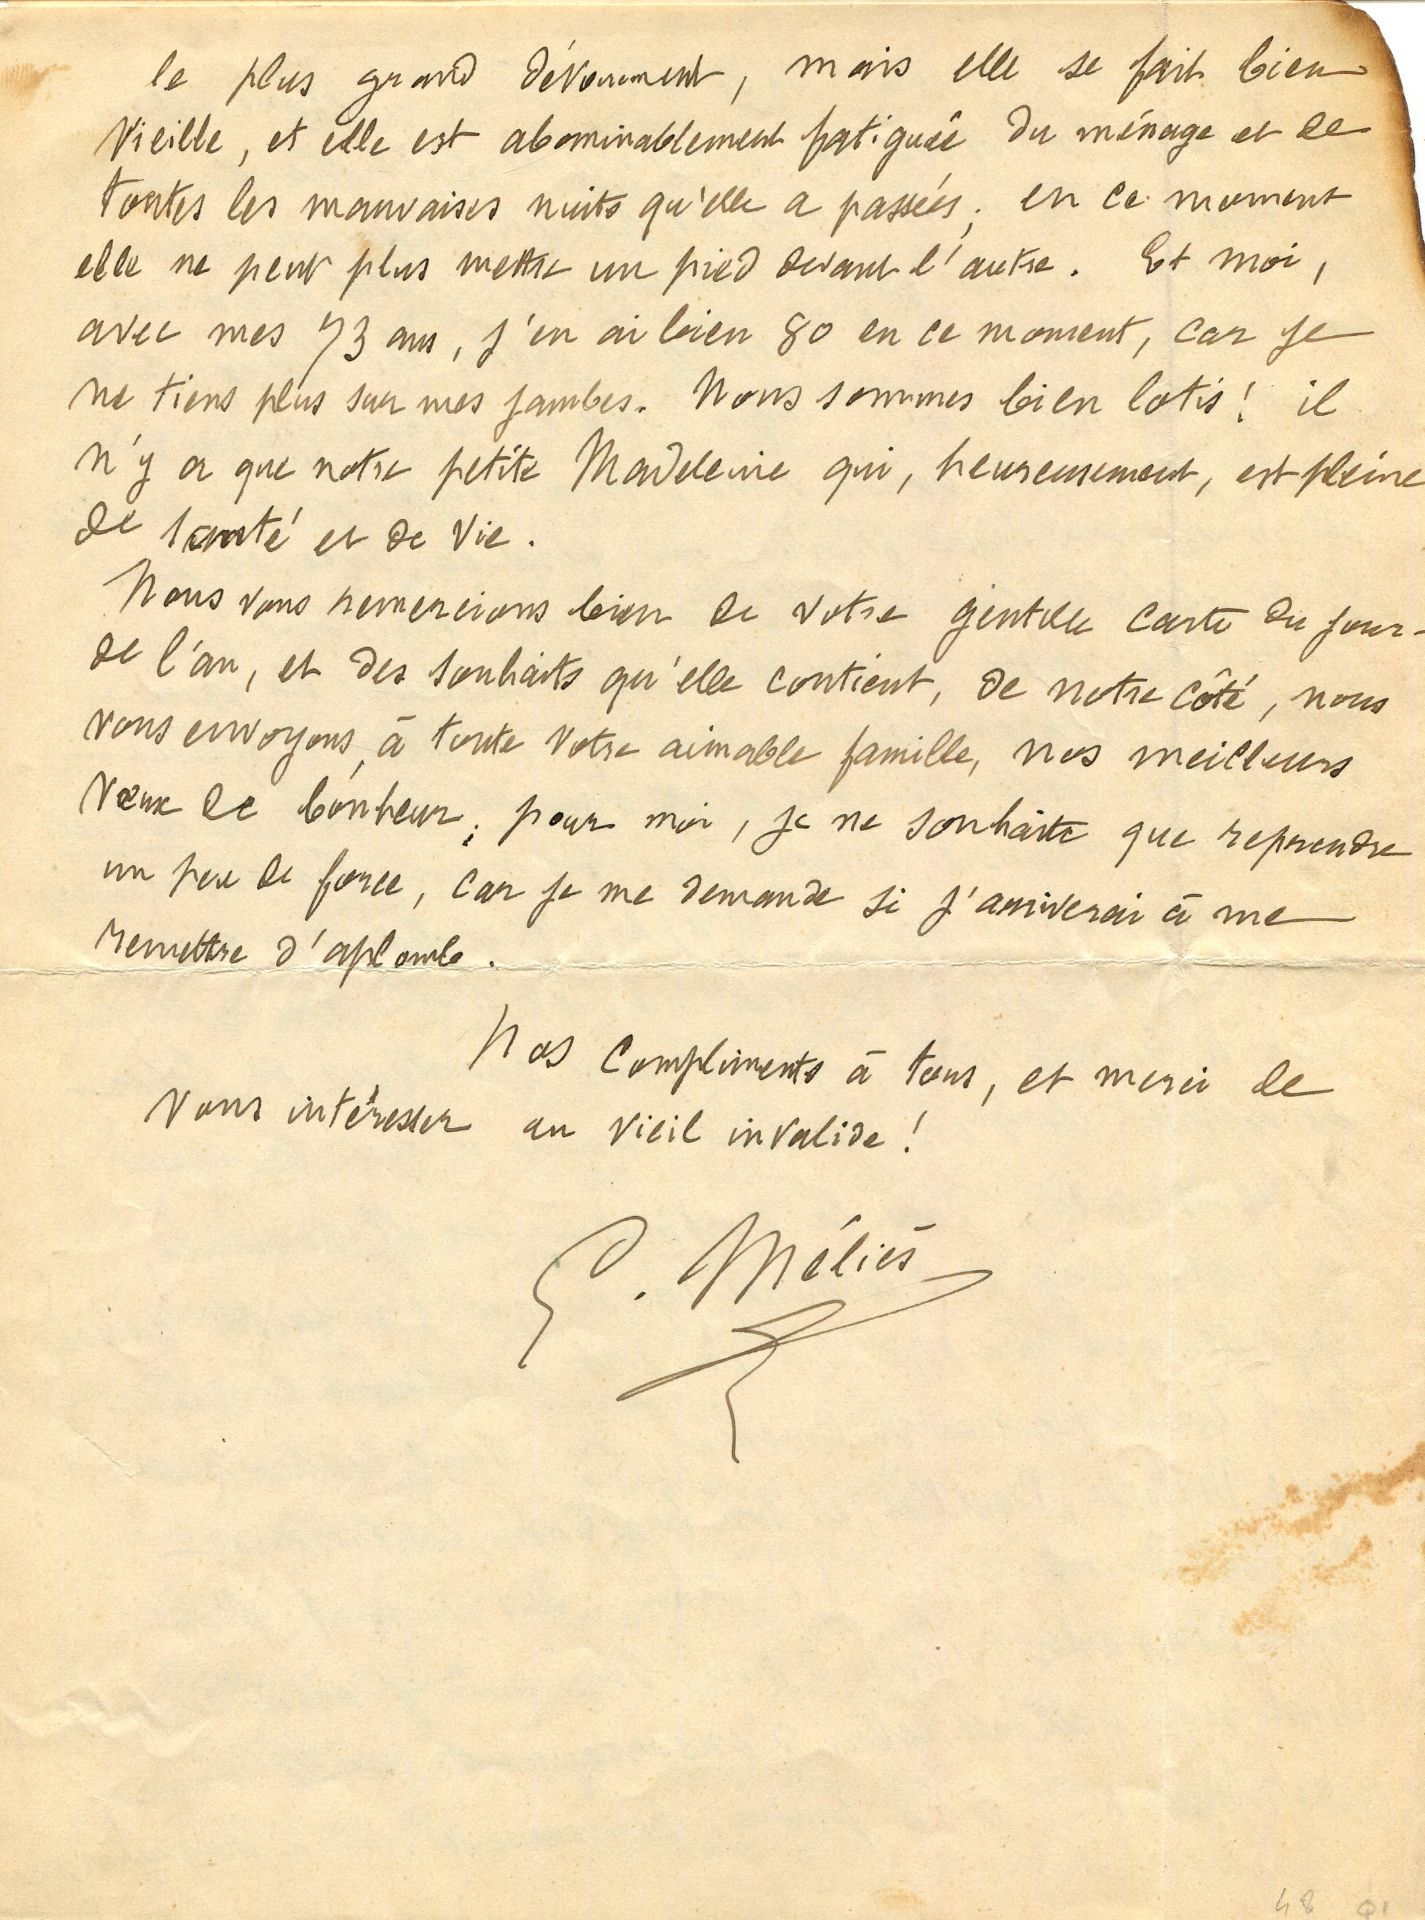 le plus grand dévouement, mais elle se fait bien
vieille, et elle est abominablement fatiguée du ménage et de
toutes les mauvaises nuits qu'elle a passées; en ce moment
elle ne peut plus mettre un pied devant l'autre. Et moi,
avec mes 73 ans, j'en ai bien 80 en ce moment, car je
ne tiens plus sur mes jambes. Nous sommes bien lotis! il
n'y a que notre petite Madeleine qui, heureusement, est pleine
de santé et de vie.
Nous vous remercions bien de votre gentille carte du jour-
de l'an, et des souhaits qu'elle contient, de notre côté, nous
vous envoyons, à toute votre aimable famille, nos meilleurs
vœux de bonheur; pour moi, je ne souhaite que reprendre
un peu de force, car je me demande si j'arriverai à me
remettre d'aplomb.
Nos compliments à tous, et merci de
vous intéresser au vieil invalide!
G. Méliès
48